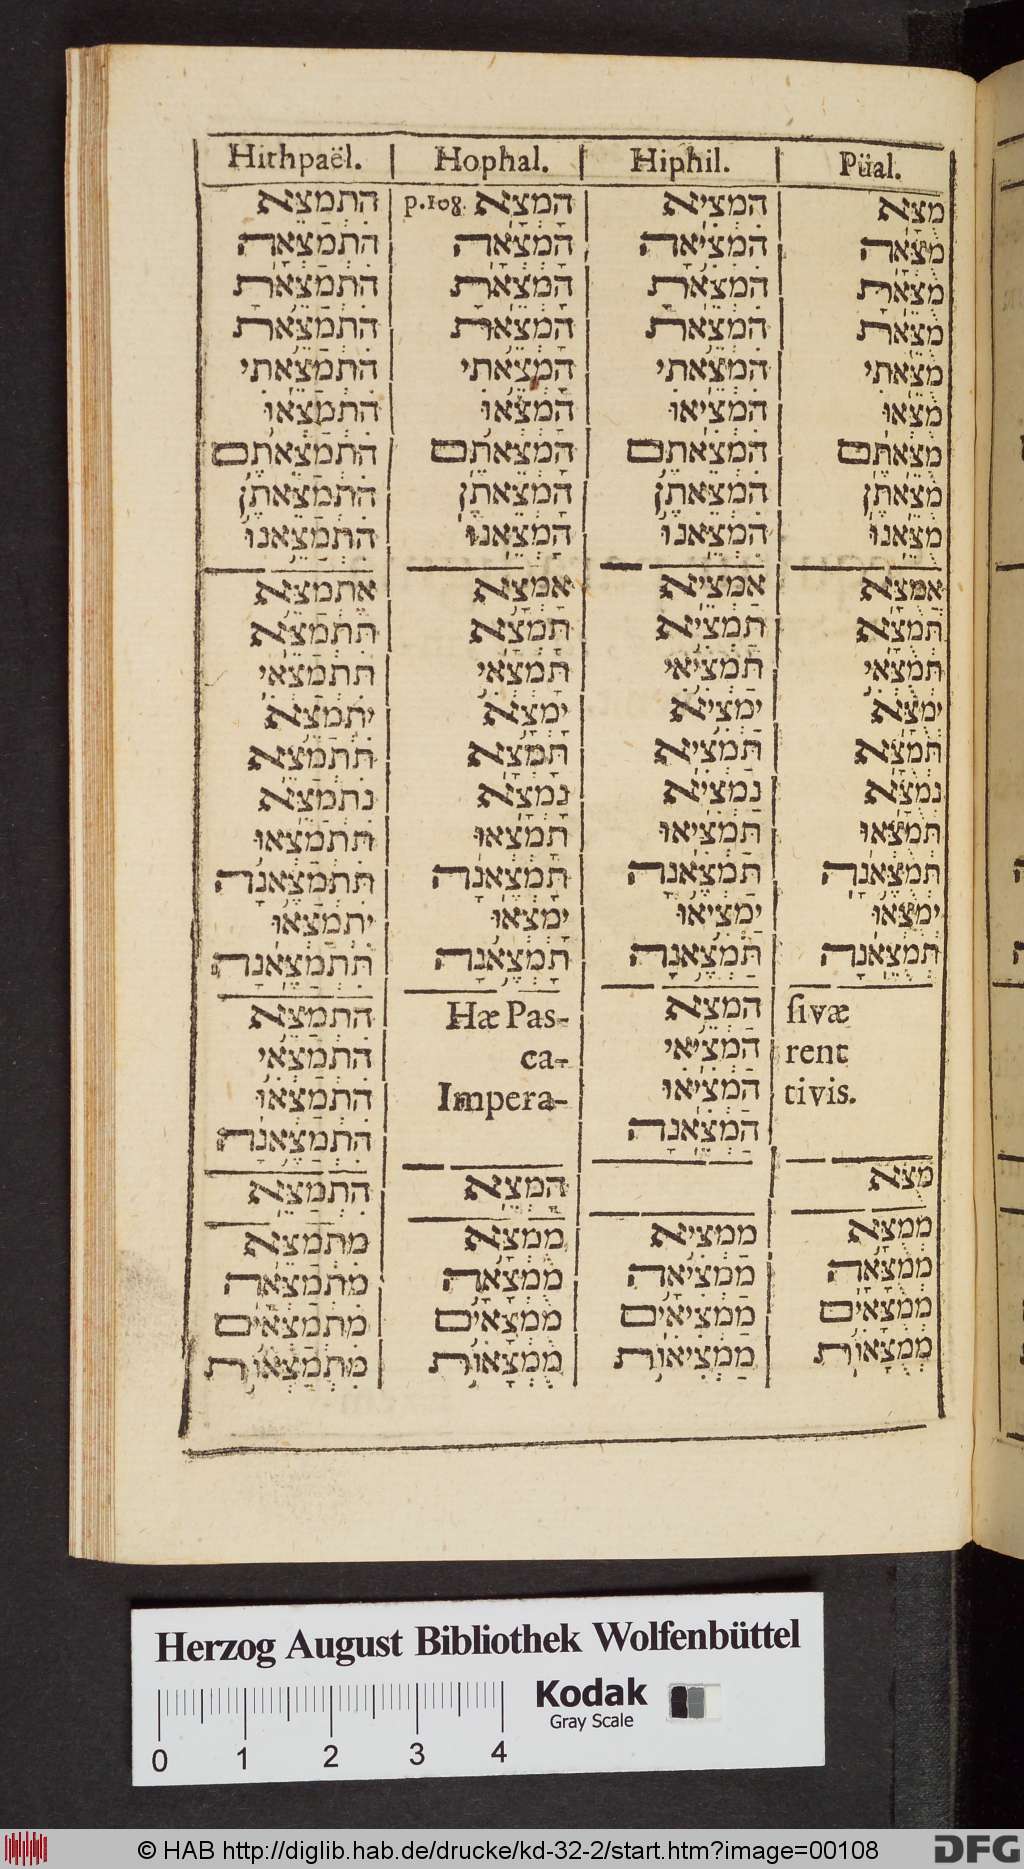 Hithpaël. Hophal. Hiphil. Püal.
התמצא p. 108. המצא המציא מצא
התמצאה המצאה המציאה מצאה
התמצאת המצאת המצאת מצאת
התמצאת המצאת המצאת מצאת
התמצאתי המצאתי המצאתי מצאתי
התמצאו המצאו המציאו מצאו
התמצאתם המצאתם המצאתם מצאתם
התמצאתן המצאתן המצאתן מצאתן
התמצאנו המצאנו המצאנו מצאנו
אתמצא אמצא אמציא אמצא
תתמצא תמצא תמציא תמצא
תתמצאי תמצאי תמציאי תמצאי
יתמצא ימצא ימציא ימצא
תתמצא תמצא תמציא תמצא
נתמצא נמצא נמציא נמצא
תתמצאו תמצאו תמציאו תמצאו
תתמצאנה תמצאנה תמצאנה תמצאנה
יתמצאו ימצאו ימציאו ימצאו
תתמצאנה תמצאנה תמצאנה תמצאנה
התמצא Hæ Pas- המצא sivæ
התמצאי ca- המציאי rent
התמצאו Impera- המציאו tivis.
התמצאנה המצאנה
התמצא המצא מצא
מתמצא ממצא ממציא ממצא
מתמצאה ממצאה ממציאה ממצאה
מתמצאים ממצאים ממציאים ממצאים
מתמצאות ממצאות ממציאות ממצאות
Herzog August Bibliothek Wolfenbüttel
Kodak
Gray Scale
0 1 2 3 4
© HAB http://diglib.hab.de/drucke/kd-32-2/start.htm?image=00108
DFG